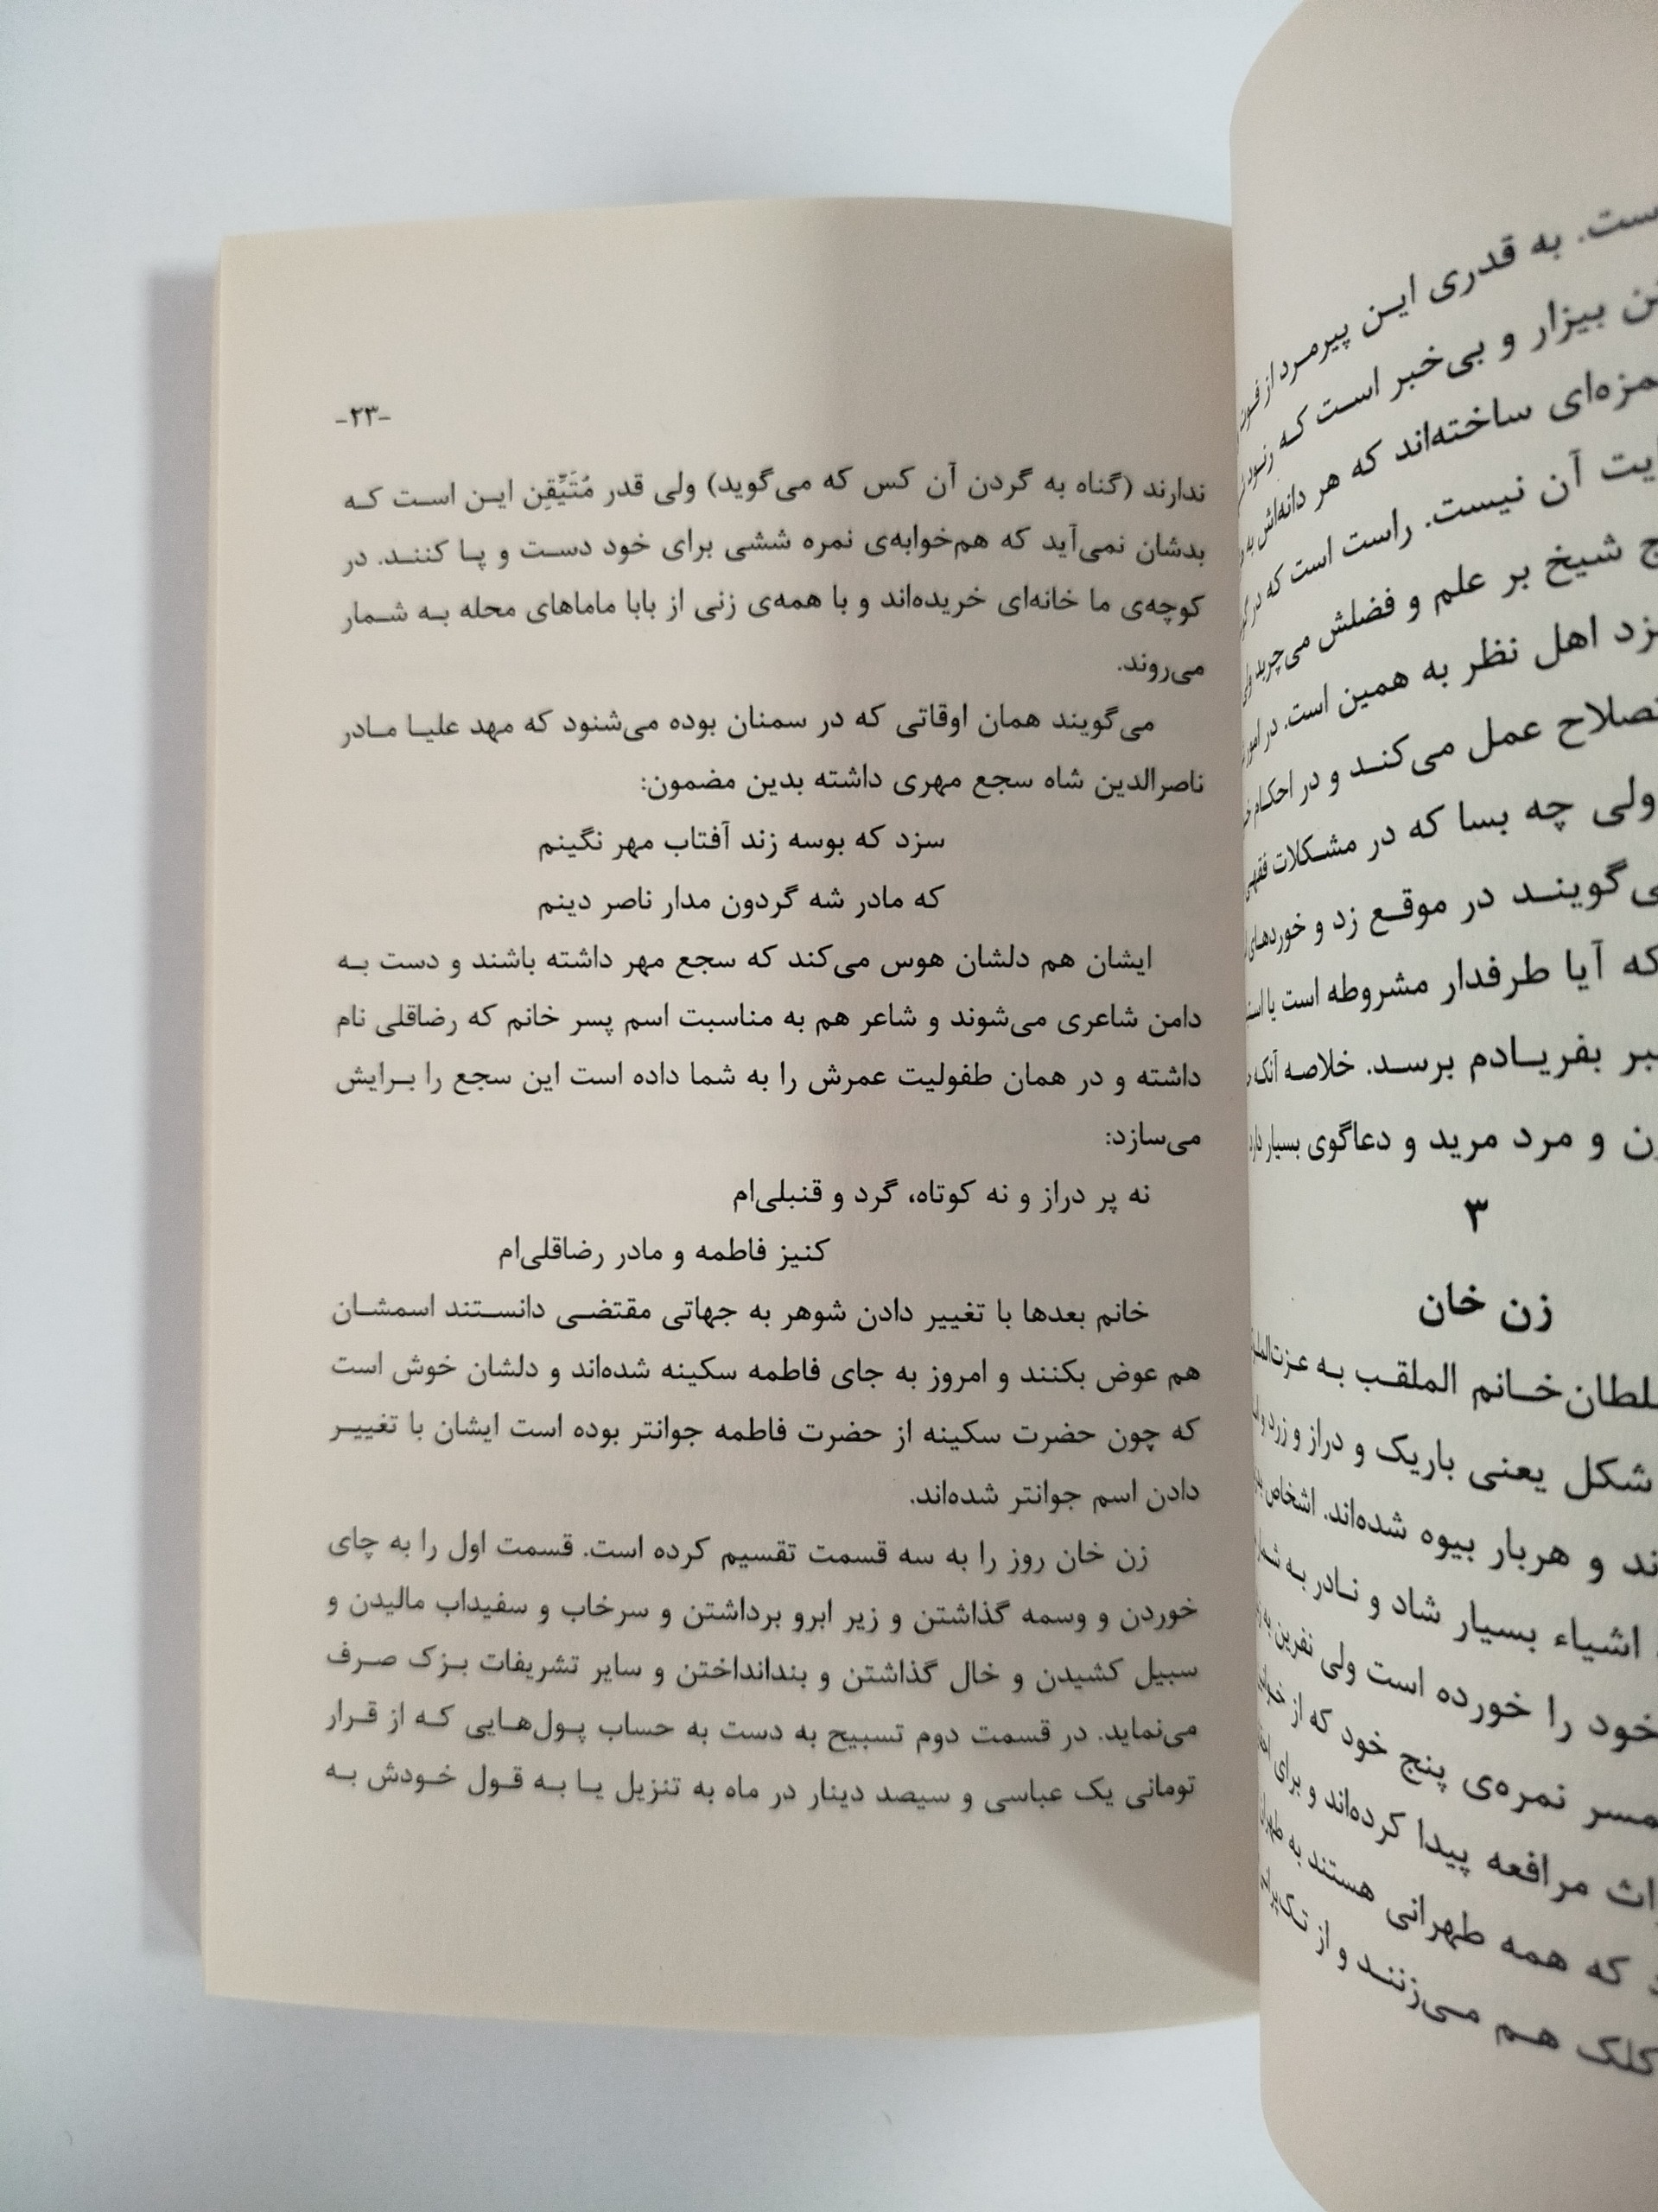 ست. به قدری این پیرمرد از
بیزار و بی‌خبر است که
ساخته‌اند که هر دانه‌اش به
آن نیست. راست است که در
شیخ بر علم و فضلش می‌چربد
اهل نظر به همین است. در امور
عمل می‌کند و در احکام
ولی چه بسا که در مشکلات فقهی
در موقع زد و خوردهای
که آیا طرفدار مشروطه است یا
بفریادم برسد. خلاصه آنکه
و مرد مرید و دعاگوی بسیار دارد
۳
زن خان
خانم الملقب به
شکل یعنی باریک و دراز و زرد و
و هربار بیوه شده‌اند. اشخاص
اشیاء بسیار شاد و نادر به شمار
خود را خورده است ولی نفرین به
نمره‌ی پنج خود که از
مرافعه پیدا کرده‌اند و برای
که همه طهرانی هستند به طهران
کلک هم می‌زنند و از
-۲۳-
ندارند (گناه به گردن آن کس که می‌گوید) ولی قدر مُتَیَّقِن این است که
بدشان نمی‌آید که هم‌خوابه‌ی نمره ششی برای خود دست و پا کنند. در
کوچه‌ی ما خانه‌ای خریده‌اند و با همه‌ی زنی از بابا ماماهای محله به شمار
می‌روند.
می‌گویند همان اوقاتی که در سمنان بوده می‌شنود که مهد علیا مادر
ناصرالدین شاه سجع مهری داشته بدین مضمون:
سزد که بوسه زند آفتاب مهر نگینم
که مادر شه گردون مدار ناصر دینم
ایشان هم دلشان هوس می‌کند که سجع مهر داشته باشند و دست به
دامن شاعری می‌شوند و شاعر هم به مناسبت اسم پسر خانم که رضاقلی نام
داشته و در همان طفولیت عمرش را به شما داده است این سجع را برایش
می‌سازد:
نه پر دراز و نه کوتاه، گرد و قنبلی‌ام
کنیز فاطمه و مادر رضاقلی‌ام
خانم بعدها با تغییر دادن شوهر به جهاتی مقتضی دانستند اسمشان
هم عوض بکنند و امروز به جای فاطمه سکینه شده‌اند و دلشان خوش است
که چون حضرت سکینه از حضرت فاطمه جوانتر بوده است ایشان با تغییر
دادن اسم جوانتر شده‌اند.
زن خان روز را به سه قسمت تقسیم کرده است. قسمت اول را به چای
خوردن و وسمه گذاشتن و زیر ابرو برداشتن و سرخاب و سفیداب مالیدن و
سبیل کشیدن و خال گذاشتن و بندانداختن و سایر تشریفات بزک صرف
می‌نماید. در قسمت دوم تسبیح به دست به حساب پول‌هایی که از قرار
تومانی یک عباسی و سیصد دینار در ماه به تنزیل یا به قول خودش به